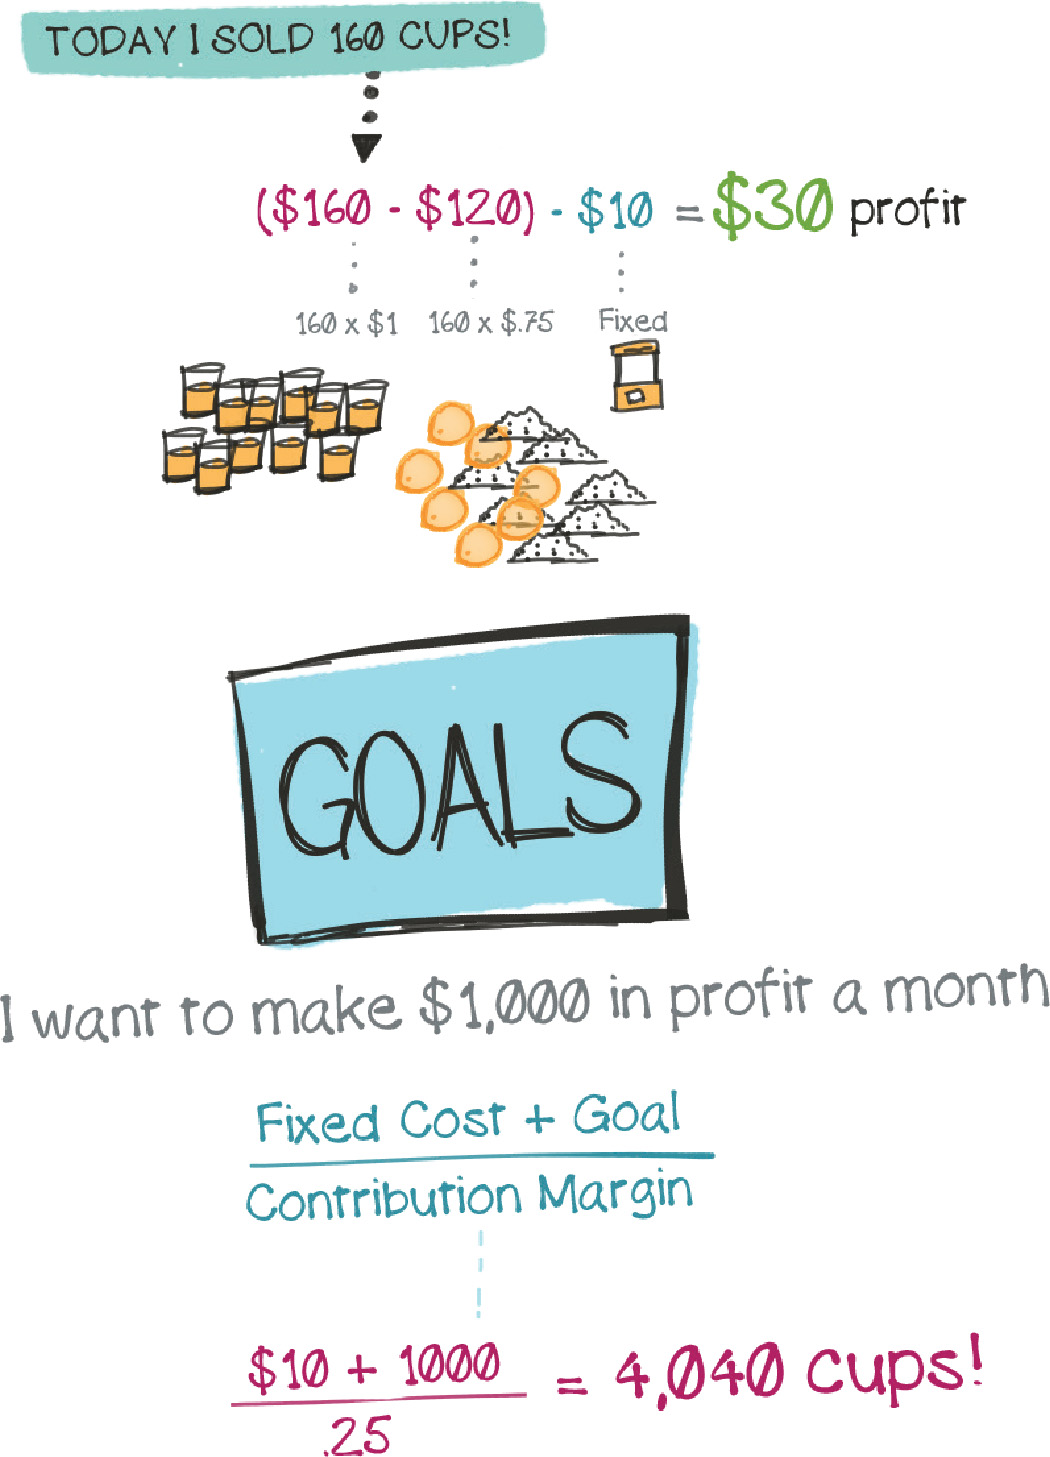 TODAY I SOLD 160 CUPS!
($160 - $120) - $10 = $30 profit
160 x $1 160 x $.75 Fixed
GOALS
I want to make $1,000 in profit a month
Fixed Cost + Goal
Contribution Margin
$10 + 1000 = 4,040 cups!
.25